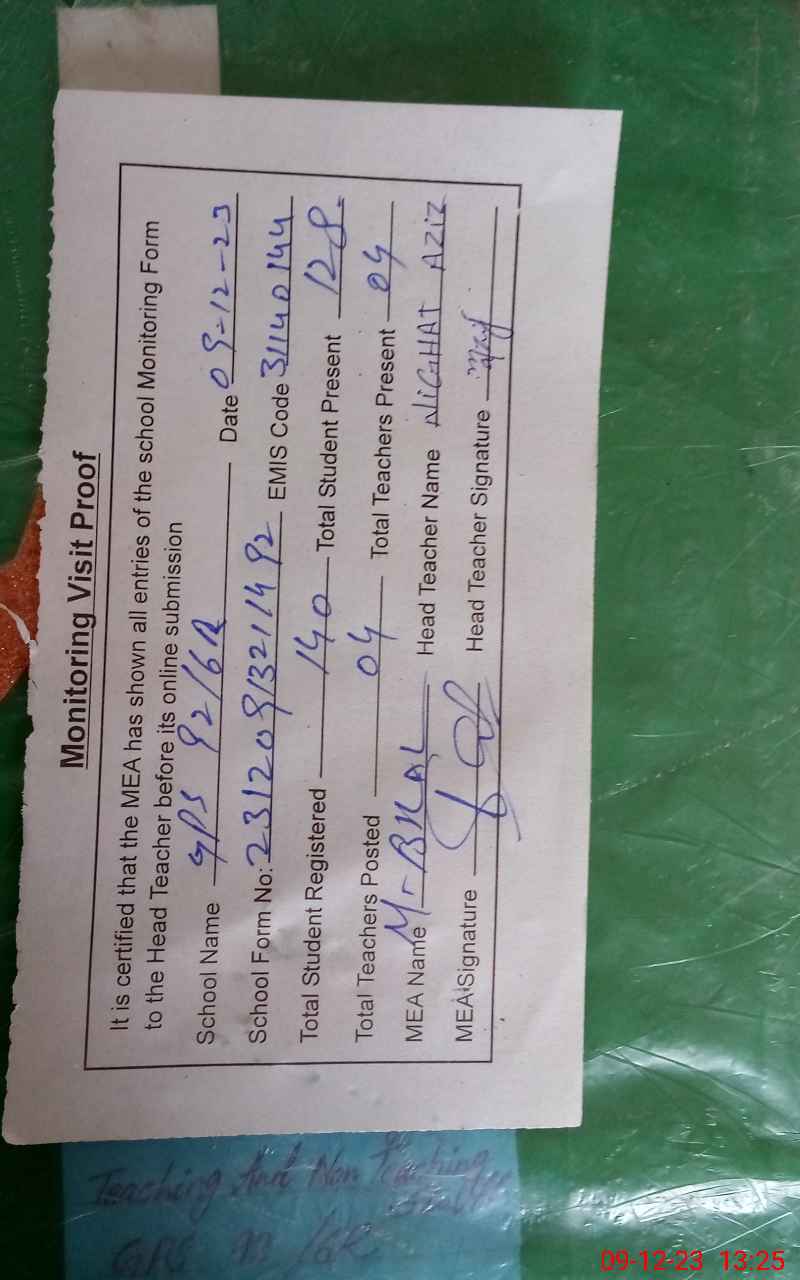 Monitoring Visit Proof
It is certified that the MEA has shown all entries of the school Monitoring Form
to the Head Teacher before its online submission
School Name GPS 92/6R Date 09-12-23
School Form No: 231209132114 92 EMIS Code 31140144
Total Student Registered 140 Total Student Present 128
Total Teachers Posted 04 Total Teachers Present 04
MEA Name M- BILAL Head Teacher Name NIGHAT AZIZ
MEA Signature Head Teacher Signature
Teaching And Non Teaching
09-12-23 13:25